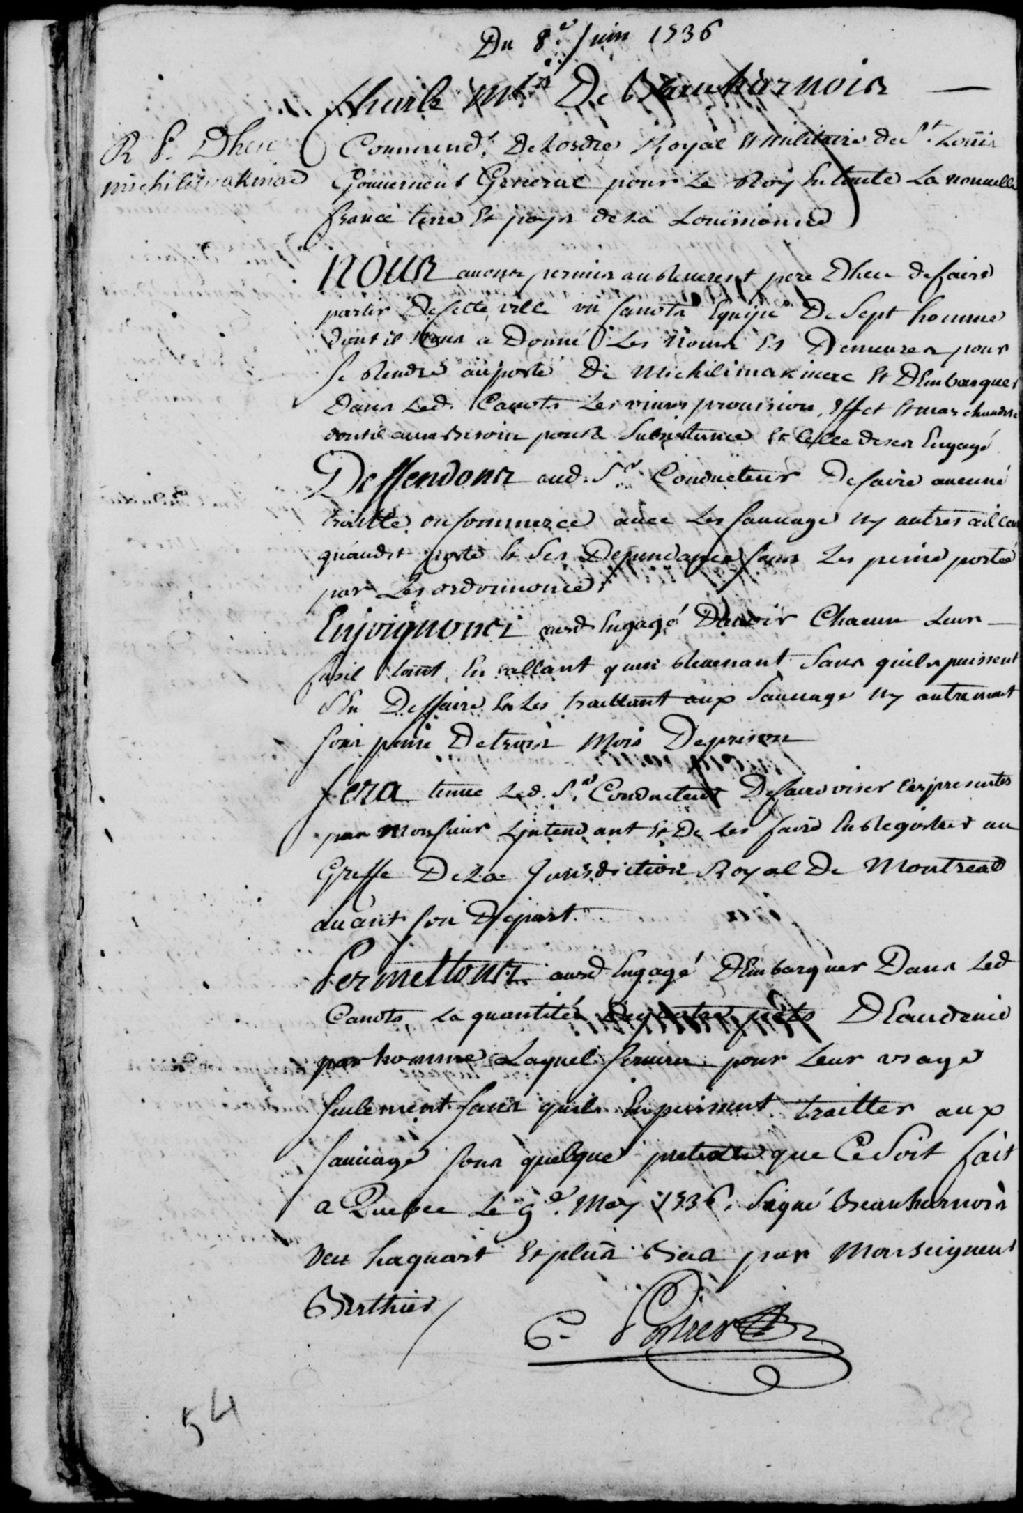 Du 8.e Juin 1736
Charle M.is De Beauharnois
R P. Dheu
michilimakinac
Commend.r De Lordre Royal & militaire de S.t Louis
Gouuerneur General pour Le Roy En toute La nouuelle
france terre Et pays de La Louisianne
Nous auons permis au Reuerent pere Dheu de faire
partir De cette ville un Canots Equipé De Sept homme
dont il Nous a Donné Les Noms Et Demeures pour
Se Rendre au poste De Michilimakinac Et DEmbarquer
Dans Led. Canots Les viures prouision, Effet & marchandise
dont il aura Besoin pour sa Subsistance Et Celle de ses Engagé
Deffendons aud. S.r Conducteur De faire aucune
traitte ou Commerce auec Les Sauuage ny autres ailleur
quaudit poste & Ses Dependance Sous Les peine porté
par Les ordonnance
Enjoignons ausd Engagé Dauoir Chacun Leur
fusil tant En allant quen Reuenant Sans quils puissent
S'En Deffaire En Les traittant aux Sauuage ny autrement
Sous peine De trois Mois De prison
Sera tenue Led. S.r Conducteur De faire viser Ces presentes
par Monsieur Lintendant Et De Les faire EnRegistrer au
Greffe De La Jurisdiction Royal De Montreal
auant Son Depart.
Permettons ausd Engagé DEmbarquer Dans Led
Canots La quantité De quatre pots DEaudeuie
par homme Laquel Seruira pour Leur usage
Seulement Sans quils En puissent traitter aux
Sauuage Sous quelque pretexte que Ce Soit fait
a Quebec Le 9.e May 1736. Signé Beauharnois
veu hocquart Et plus Bas par Monseigneur
Berthier /
C. Porlier
54